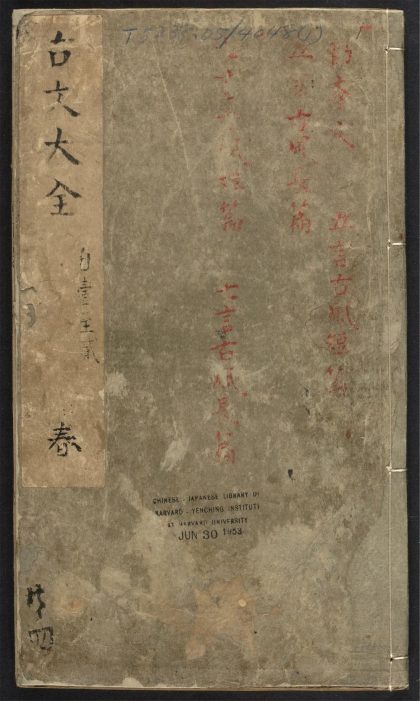 T 5235.05/4048(1)
勸學文 五言古風短篇
五言古風長篇
七言古風短篇 七言古風長篇
古文大全
自壹至貳
春
共四
CHINESE - JAPANESE LIBRARY OF
HARVARD - YENCHING INSTITUTE
AT HARVARD UNIVERSITY
JUN 30 1953